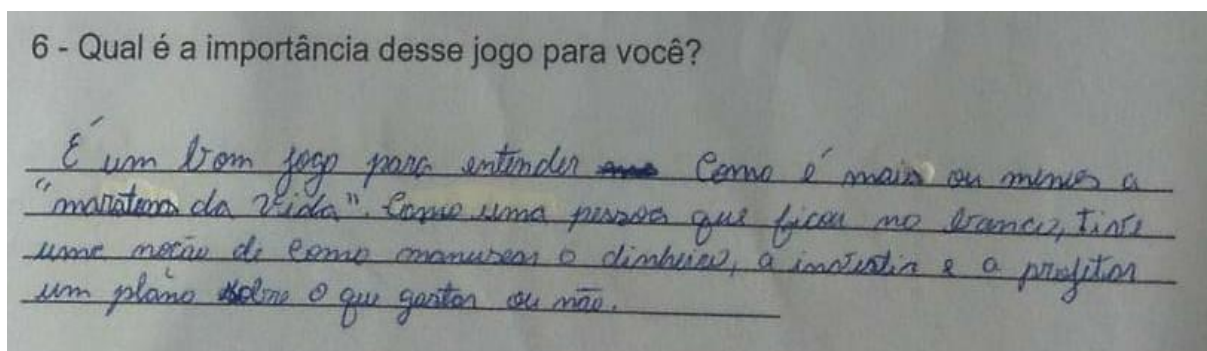 6 - Qual é a importância desse jogo para você?
É um bom jogo para entender como é mais ou menos a
"maratona da vida". Como uma pessoa que ficou no banco, tive
uma noção de como manusear o dinheiro, a investir e a projetar
um plano sobre o que gastar ou não.